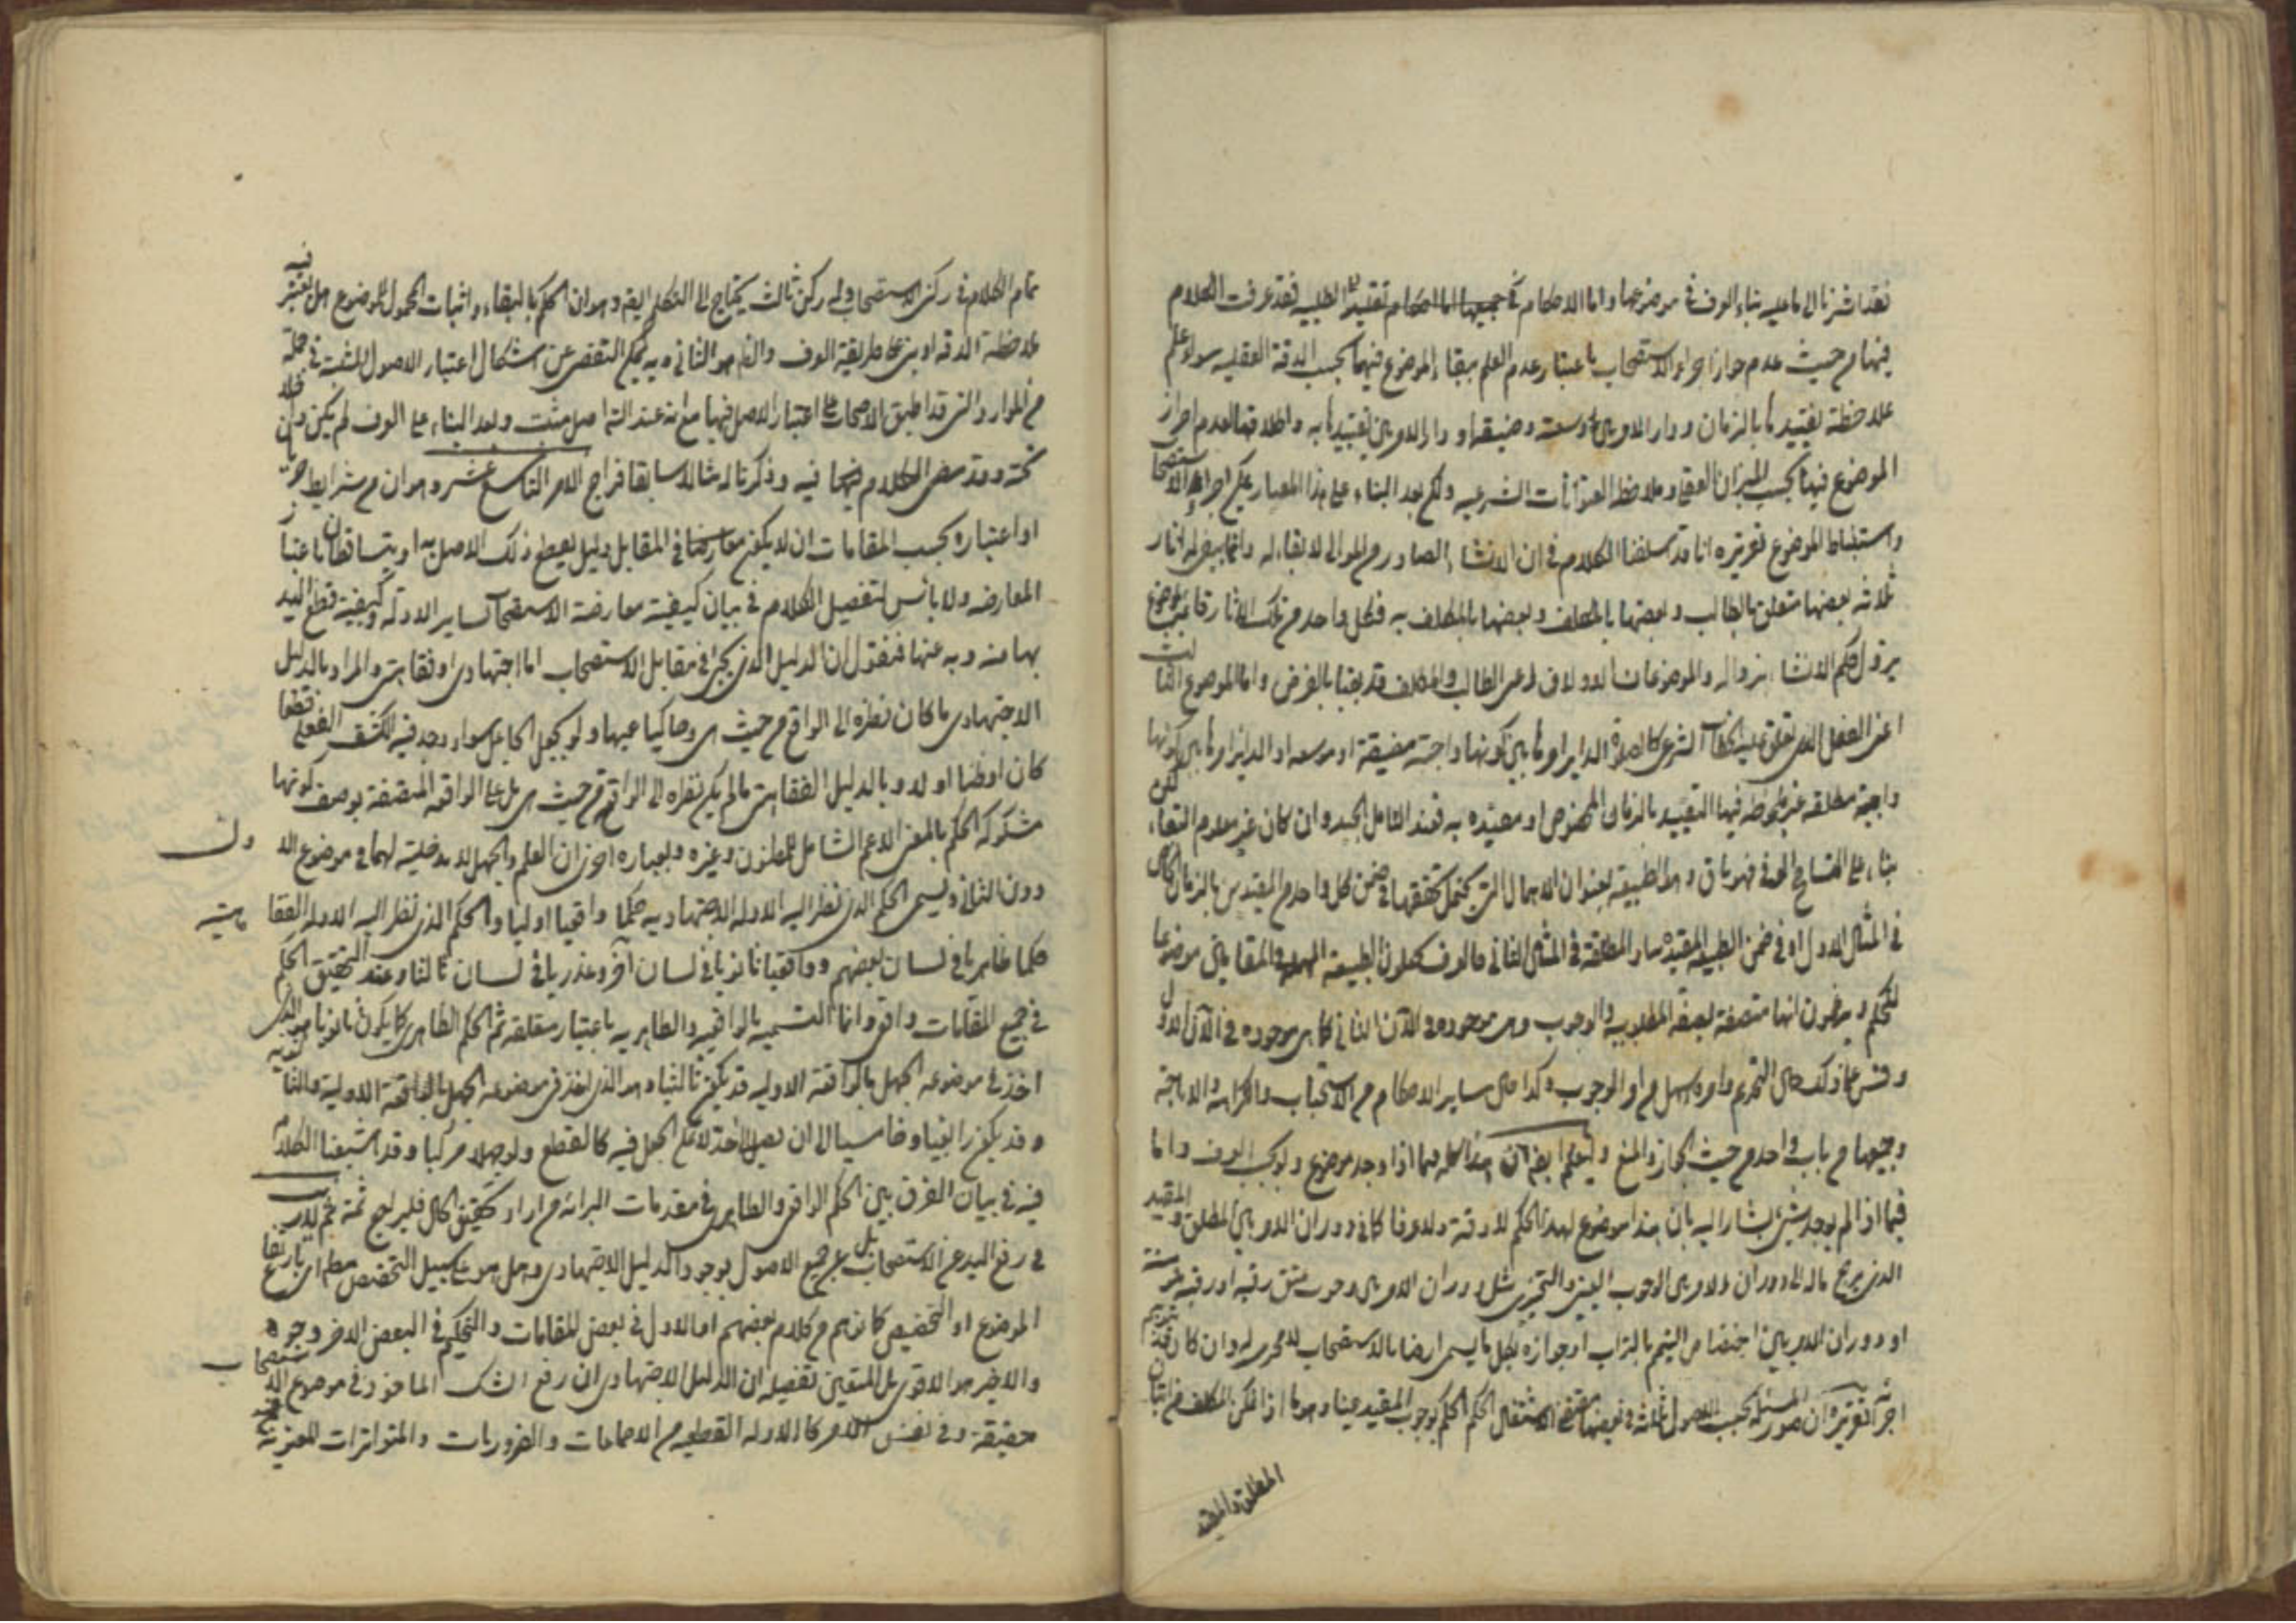 فقد اشرنا الى ما عليه بناء العرف في موضوعها واما الاحكام في جميعها اما احكام تقييد الطلبيه فقد عرفت الكلام
فيها من حيث عدم جواز اجراء الاستصحاب باعتبار عدم العلم ببقاء الموضوع فيها بحسب الدقة العقليه سواء علم
ملاحظة تقييدها بالزمان ودار الامر بين وسعته وضيقه او دار الامر بين تقييدها به واطلاقها لعدم احراز
الموضوع فيها بحسب الميزان العقلي وملاحظة العنوانات الشرعيه ولكن بعد البناء على هذا المعيار يمكن اجراء الاستصحاب
واستنباط الموضوع تقريره انا قد اسلفنا الكلام في ان الانشاء الصادر من الموالى لا بقاء له وانما يبقى له اثار
ثلاثه بعضها متعلق بالطالب وبعضها بالمكلف وبعضها بالمكلف به فكل واحد من تلك الاثار قائمة بموضوع
يزول حكم الانشاء بزواله والموضوعان الاولان اعنى الطالب والمكلف قد بقيا بالفرض واما الموضوع الثالث
اعنى الفعل الذى تعلق عليه الخطاب الشرعى كالصلوة الداير امرها بين كونها واجبة مضيقة او موسعه او الداير امرها بين كونها
واجبة مطلقه غير ملحوظه فيها التقييد بالزمان المخصوص او مقيده به فعند التامل الجيد وان كان غير معلوم البقاء لكن
بناء على التسامح العرفى فهو باق وهو الطبيعة بعنوان الاهمال التى يحتمل تحققها في ضمن كل واحد من المقيدين بالزمان كما
في المثال الاول او في ضمن الطبيعة المقيده او المطلقة في المثال الثانى فالعرف يجعلون الطبيعة المهملة والمقامين موضوعا
للحكم ويرون انها متصفة بصفة المطلوبية والوجوب وهى موجوده في الآن الثانى كما هى موجوده في الآن الاول
وقس على ذلك حال التحريم وامره اسهل من امر الوجوب وكذا حال ساير الاحكام من الاستحباب والكراهة والاباحة
وجميعها من باب واحد من حيث الجواز والمنع وليعلم ايضا ان هذا كله فيما اذا وجد موضوع ولو بحسب العرف واما
فيما اذا لم يوجد شىء يشار اليه بان هذا موضوع لهذا الحكم لا دقة ولا عرفا كما في دوران الامر بين المطلق والمقيد
الذى يرجع ماله الى دوران الامر بين الوجوب العينى والتخييرى مثل دوران الامر بين وجوب عتق رقبه او رقبه مؤمنة
او دوران الامر بين اختصاص التيمم بالتراب او جوازه بكل ما يسمى ارضا فالاستصحاب لا مجرى له وان كان قد يتوهم
اجرائه تقريره ان صور المسئلة بحسب الاصول ثلثة في بعضها مقتضى الاشتغال الحكم بوجوب المقيد عينا وهو ما اذا تمكن المكلف من اتيان
المطلق والمقيد
تمام الكلام في ركنى الاستصحاب وله ركن ثالث يحتاج الى التكلم فيه وهو ان الحكم بالبقاء واثبات المحمول للموضوع هل يعتبر فيه
ملاحظة الدقه او يبنى على طريقة العرف والظاهر هو الثانى وبه يمكن التفصى عن اشكال اعتبار الاصول المثبتة في جملة
من الموارد التى قد اطبق الاصحاب على اعتبار الاصل فيها مع انه عند الدقة اصل مثبت وبعد البناء على العرف لم يكن داخلا
تحته وقد مضى الكلام فيه وذكرنا له مثالا سابقا فراجع الامر التاسع عشر وهو ان من شرايط جريانه
او اعتباره بحسب المقامات ان لا يكون معارضا في المقابل دليل يعطى ذلك الاصل به او يتساقطان باعتبار
المعارضه ولا باس لتفصيل الكلام في بيان كيفية معارضة الاستصحاب لساير الادلة وكيفية قطع اليد
بها منه وبه عنها فنقول ان الدليل الذى يجرى في مقابل الاستصحاب اما اجتهادى او فقاهتى والمراد بالدليل
الاجتهادى ما كان نظره الى الواقع من حيث هى وحاكيا عنها ولو بجعل الجاعل سواء وجد فيه الكشف الفعلى قطعا
كان او ظنا او لا وبالدليل الفقاهتى ما لم يكن نظره الى الواقع من حيث هى بل على الواقعة المتصفة بوصف كونها
مشكوكه الحكم بالمعنى الاعم الشامل للمظنون وغيره وبعباره اخرى ان العلم والجهل لا مدخلية لهما في موضوع الاول
دون الثانى ويسمى الحكم الذى نظر اليه الادله الاجتهاديه حكما واقعيا اوليا والحكم الذى نظر اليه الادله الفقاهتية
حكما ظاهريا في لسان بعضهم وواقعيا ثانويا في لسان آخر وعذريا في لسان ثالث وعند التحقيق الحكم
في جميع المقامات واقعى وانما التسميه بالواقعيه والظاهريه باعتبار متعلقه ثم الحكم الظاهرى كما يكون ثانويا هو الذى
اخذ في موضوعه الجهل بالواقعة الاوليه قد يكون ثالثيا وهو الذى اخذ في موضوعه الجهل بالواقعة الاولية والثانوية
وقد يكون رابعيا وخامسيا الى ان يصل الى حد لا يمكن الجعل فيه كالقطع ولو جهلا مركبا وقد اشبعنا الكلام
فيه في بيان الفرق بين الحكم الواقعى والظاهرى في مقدمات البرائه من اراد تحقيق الحال فليراجع ثمة ثم
في رفع اليد عن الاستصحاب بل عن جميع الاصول بوجود الدليل الاجتهادى وهل هو على سبيل التخصيص مطلقا او بارتفاع
الموضوع او التخصيص كما توهم من كلام بعضهم او الاول في بعض المقامات والتحكيم في البعض الاخر وجوه
والاخير هو الاقوى بل المتعين تفصيله ان الدليل الاجتهادى ان رفع الشك الماخوذ في موضوع الاستصحاب
حقيقة وفي نفس الامر كالادله القطعيه من الاجماعات والضروريات والمتواترات المعتبرة